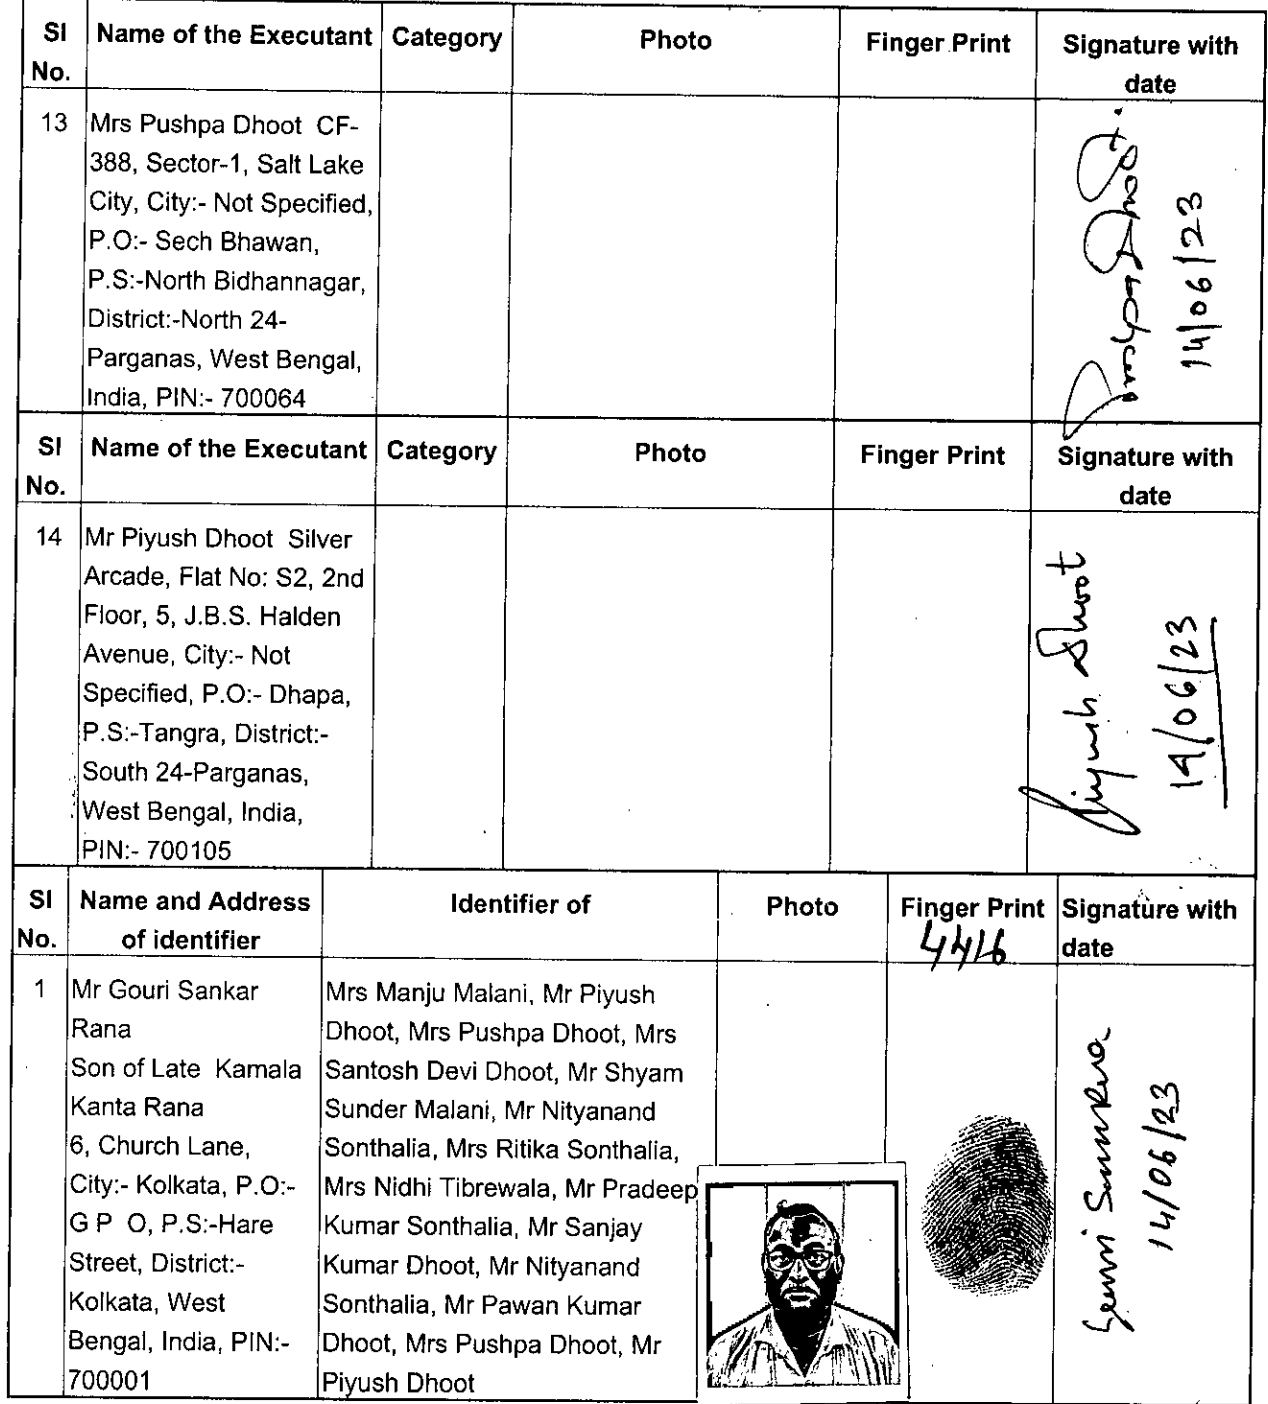 Sl No. Name of the Executant Category Photo Finger Print Signature with date
13 Mrs Pushpa Dhoot CF-
388, Sector-1, Salt Lake
City, City:- Not Specified,
P.O:- Sech Bhawan,
P.S:-North Bidhannagar,
District:-North 24-
Parganas, West Bengal,
India, PIN:- 700064
Pushpa Dhoot.
14/06/23
Sl No. Name of the Executant Category Photo Finger Print Signature with date
14 Mr Piyush Dhoot Silver
Arcade, Flat No: S2, 2nd
Floor, 5, J.B.S. Halden
Avenue, City:- Not
Specified, P.O:- Dhapa,
P.S:-Tangra, District:-
South 24-Parganas,
West Bengal, India,
PIN:- 700105
Piyush Dhoot
14/06/23
Sl No. Name and Address of identifier Identifier of Photo Finger Print Signature with date
4416
1 Mr Gouri Sankar
Rana
Son of Late Kamala
Kanta Rana
6, Church Lane,
City:- Kolkata, P.O:-
G P O, P.S:-Hare
Street, District:-
Kolkata, West
Bengal, India, PIN:-
700001
Mrs Manju Malani, Mr Piyush
Dhoot, Mrs Pushpa Dhoot, Mrs
Santosh Devi Dhoot, Mr Shyam
Sunder Malani, Mr Nityanand
Sonthalia, Mrs Ritika Sonthalia,
Mrs Nidhi Tibrewala, Mr Pradeep
Kumar Sonthalia, Mr Sanjay
Kumar Dhoot, Mr Nityanand
Sonthalia, Mr Pawan Kumar
Dhoot, Mrs Pushpa Dhoot, Mr
Piyush Dhoot
14/06/23